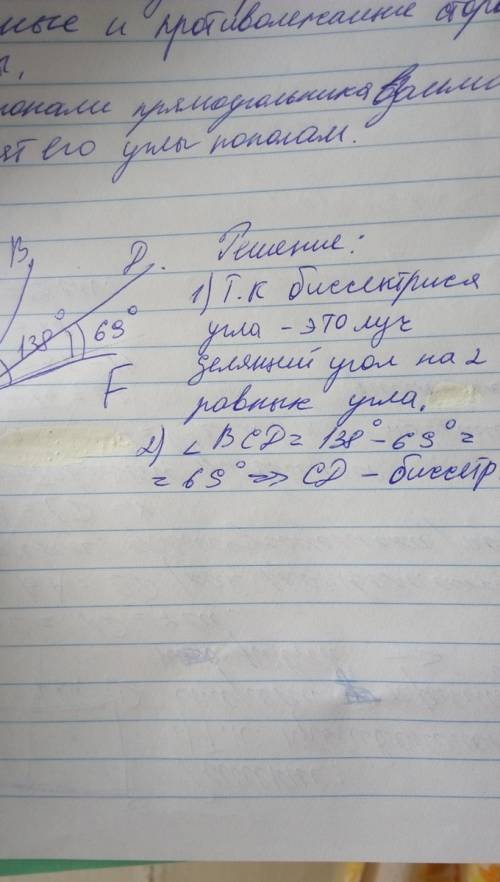 ные и противолежащие сторо
ы.
гонали прямоугольника взаимн
ят его углы пополам.
B
D.
138°
69°
F
Решение:
1) Т.к биссектриса
угла - это луч
делящий угол на 2
равных угла.
2) ∠BCD = 138° - 69° =
= 69° => CD - биссектр